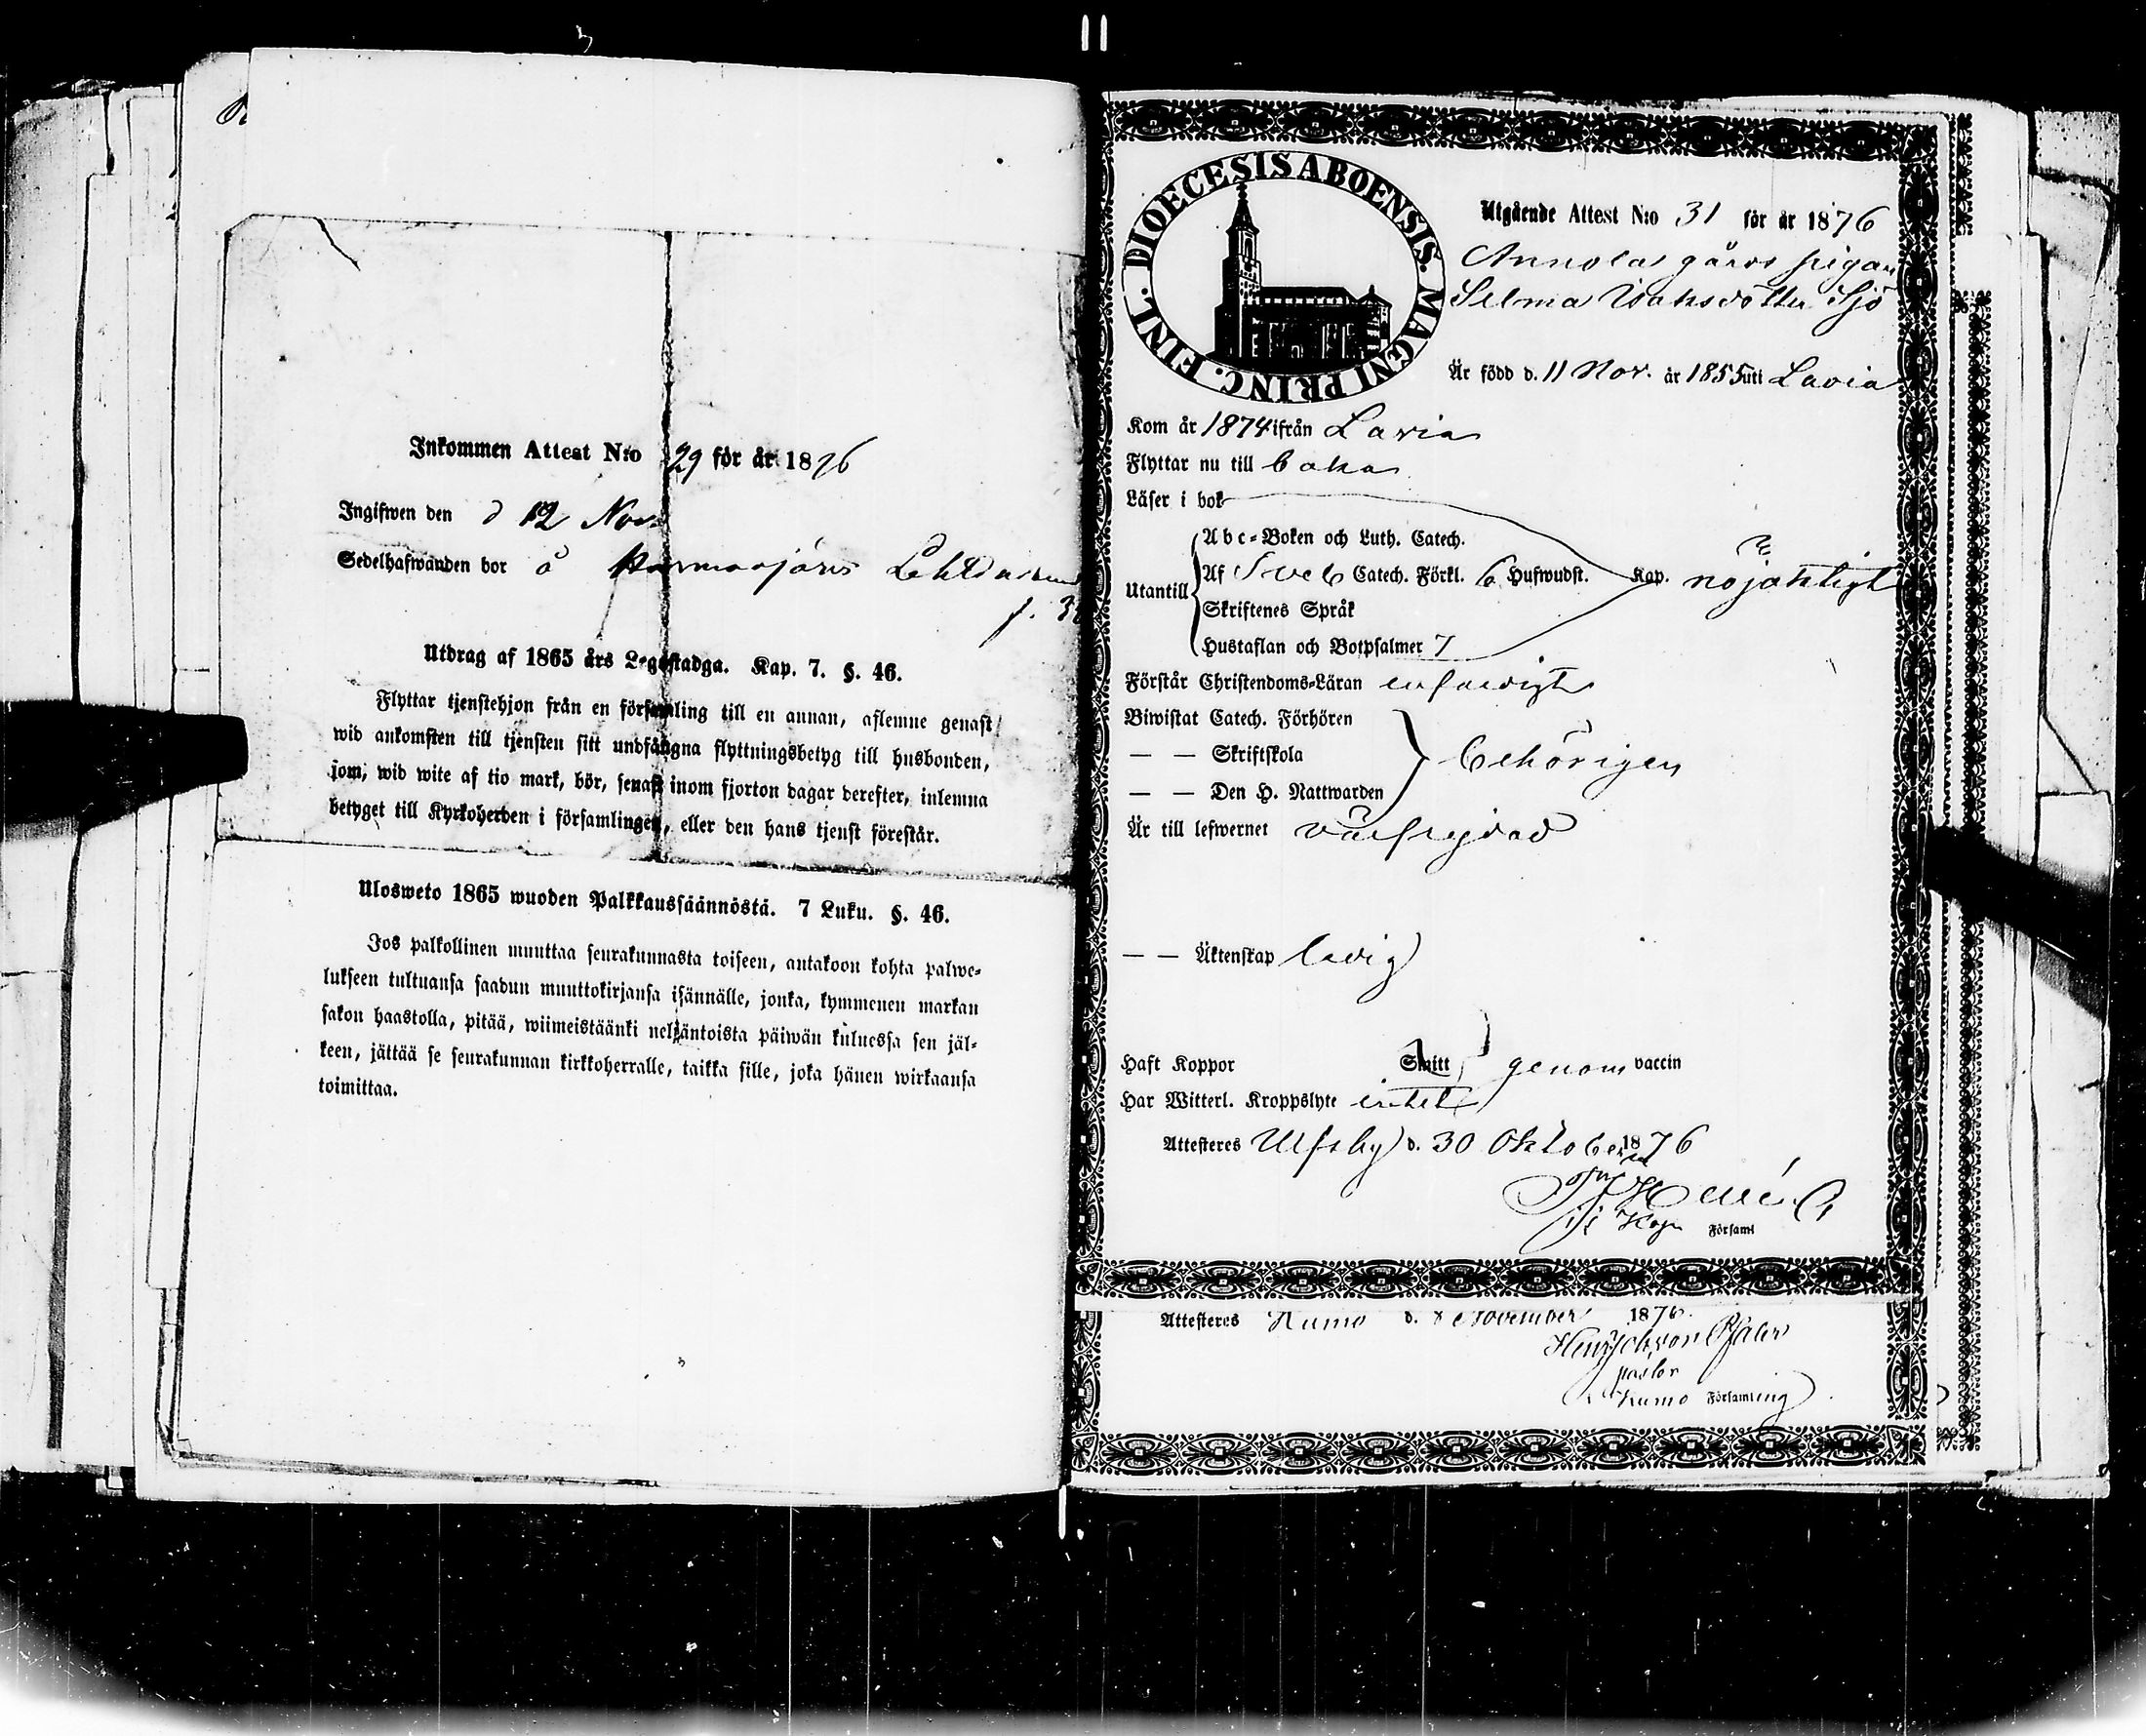 Inkommen Attest N:o 29 för år 1876
Ingifwen den d 12 Nov.
Sedelhafwanden bor å
Utdrag af 1865 års Legostadga. Kap. 7. §. 46.
Flyttar tjenstehjon från en församling till en annan, aflemne genast
wid ankomsten till tjensten sitt undfångna flyttningsbetyg till husbonden,
som, wid wite af tio mark, bör, senast inom fjorton dagar derefter, inlemna
betyget till Kyrkoherden i församlingen, eller den hans tjenst förestår.
Ulosweto 1865 wuoden Palkkaussäännöstä. 7 Luku. §. 46.
Jos palkollinen muuttaa seurakunnasta toiseen, antakoon kohta palwe-
lukseen tultuansa saadun muuttokirjansa isännälle, jonka, kymmenen markan
sakon haastolla, pitää, wiimeistäänki neljäntoista päiwän kuluessa sen jäl-
keen, jättää se seurakunnan kirkkoherralle, taikka sille, joka hänen wirkaansa
toimittaa.
DIOECESIS ABOENSIS. MAGNI PRINC. FINL.
Utgående Attest N:o 31 för år 1876
Annola gårds pigan
Selma Isaksdotter Sjö
Är född d. 11 Nov. år 1855 uti Lavia
Kom år 1874 ifrån Lavia
Flyttar nu till
Läser i bok
Abc-Boken och Luth. Catech.
Utantill Af Sveb Catech. Förkl. 6 Hufwudst. Kap. nöjaktigt
Skriftenes Språk
Hustaflan och Botpsalmer 7
Förstår Christendoms-Läran enfaldigt
Biwistat Catech. Förhören
— — Skriftskola behörigen
— — Den H. Nattwarden
Är till lefwernet välfrejdad
— — Äktenskap ledig
Haft Koppor Smitt genom vaccin
Har Witterl. Kroppslyte intet
Attesteres Ulfsby d. 30 Oktober 1876
Församl
Attesteres Kumo d. 8 November 1876.
pastor
Kumo Församling